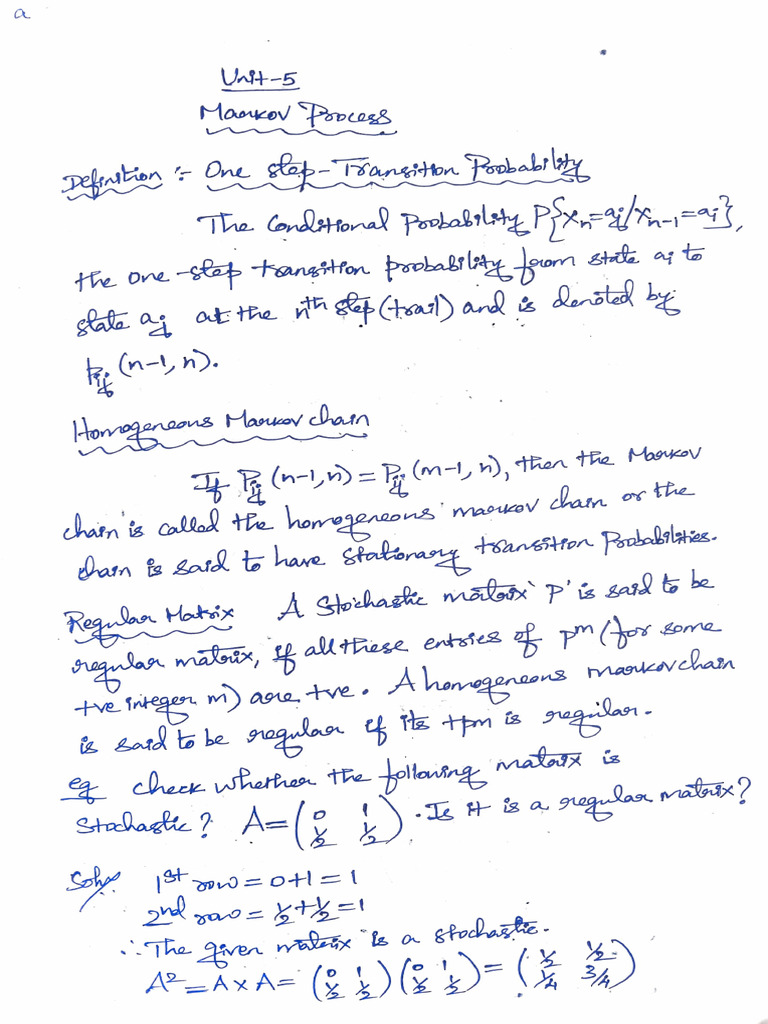 a
Unit-5
Markov Process
Definition :- One step-Transition Probability
The Conditional Probability P{Xn=aj/Xn-1=ai},
the one-step transition probability from state ai to
state aj at the nth step (trail) and is denoted by
Pij (n-1, n).
Homogeneous Markov chain
If Pij (n-1, n) = Pij (m-1, n), then the Markov
chain is called the homogeneous markov chain or the
chain is said to have stationary transition Probabilities.
Regular Matrix A stochastic matrix 'P' is said to be
regular matrix, if all these entries of P^m (for some
+ve integer m) are +ve. A homogeneous markov chain
is said to be regular if its tpm is regular.
eg check whether the following matrix is
Stochastic? A = (0 1 ½ ½). Is it is a regular matrix?
Soln 1st row = 0+1=1
2nd row = ½+½=1
∴ The given matrix is a stochastic.
A² = A x A = (0 1 ½ ½) (0 1 ½ ½) = (½ ½ ¼ 3/4)